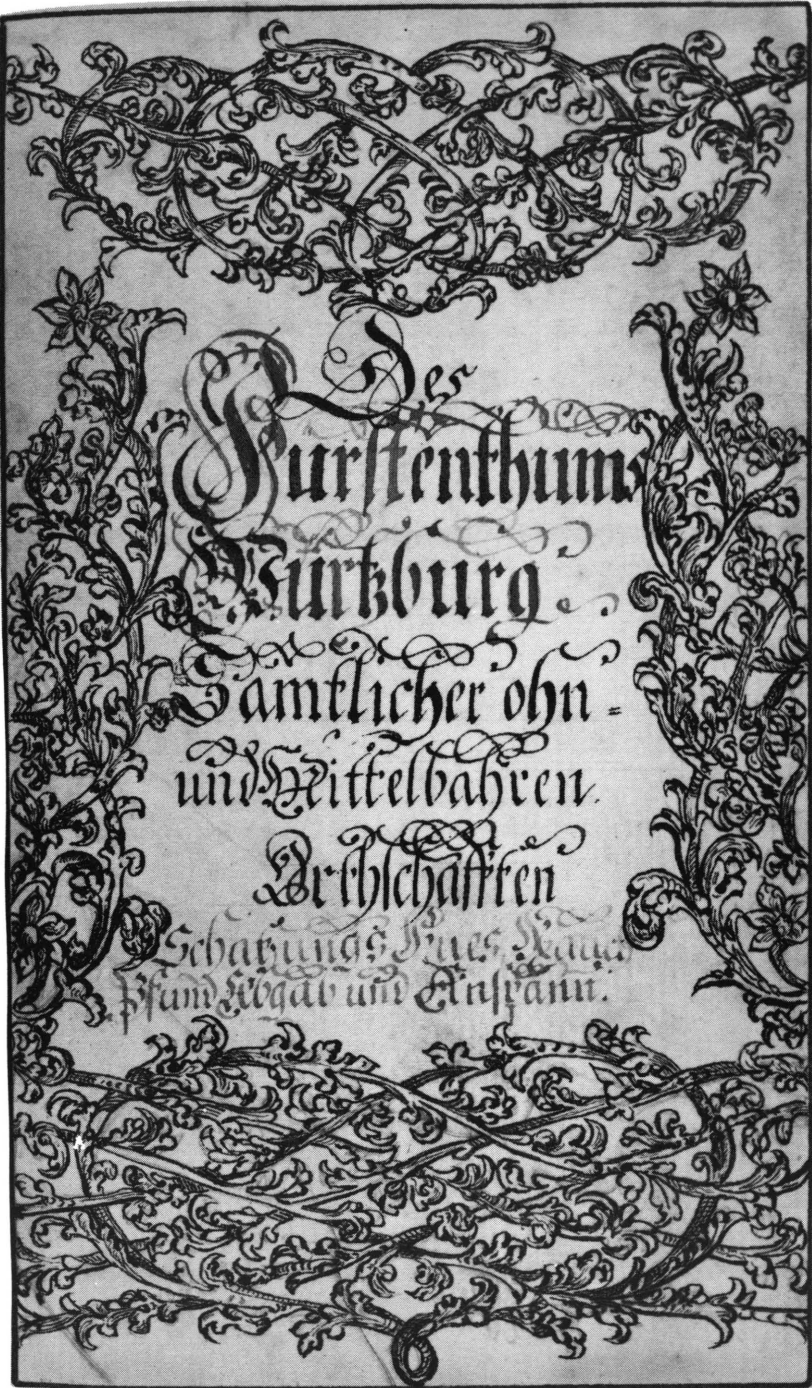 Des
Fürstenthums
Würtzburg
Sämtlicher ohn=
und Mittelbahren
Orthschafften
Schatzungs
Pfund Abgab und Anspann.